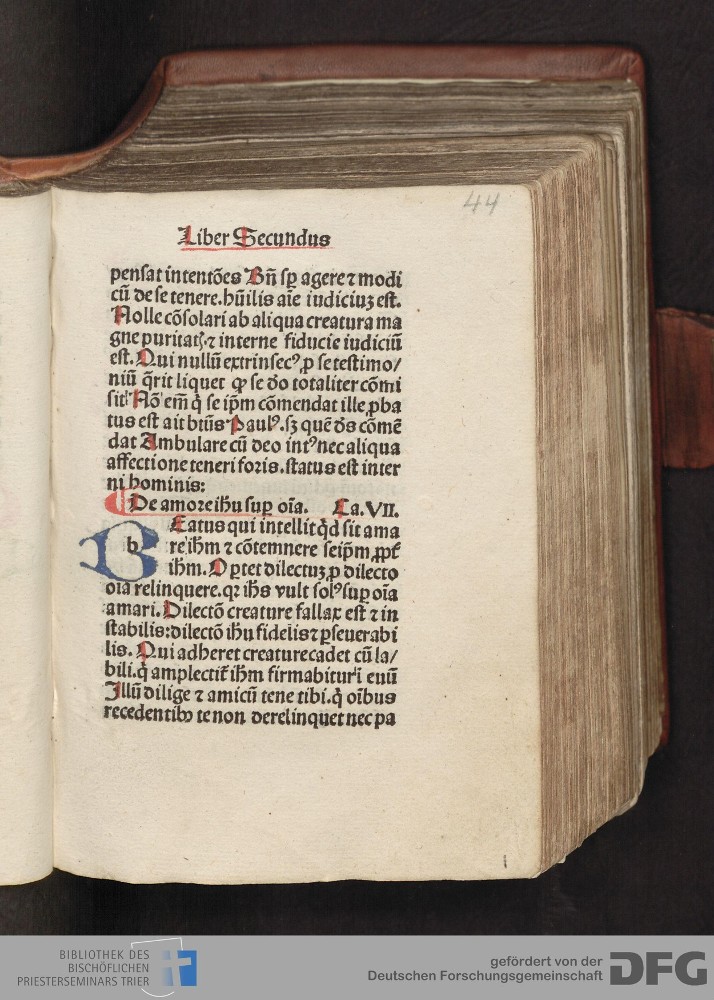 44
Liber Secundus
pensat intentões Bñ sꝑ agere ⁊ modi
cũ de se tenere. hũilis aĩe iudiciuʒ est.
Nolle cõsolari ab aliqua creatura ma
gne puritatꝭ ⁊ interne fiducie iudiciũ
est. Qui nullũ extrinsecꝰ ꝓ se testimo/
niũ q̃rit liquet ꝙ se do totaliter cõmi
sit Nõ em̃ q̇ se ip̃m cõmendat ille ꝓba
tus est ait btũs Paulꝰ. sꝫ quẽ dẽs cõmẽ
dat Ambulare cũ deo intꝰ nec aliqua
affectione teneri foris. status est inter
ni hominis:
De amore ihũ suꝑ oĩa. Ca. VII.
b
Eatus qui intellit q̇d sit ama
re ihm̃ ⁊ cõtemnere seip̃m ꝓpt̃
ihm̃. Oꝑtet dilectuʒ ꝓ dilecto
oĩa relinquere. qꝛ ihs̃ vult solꝰ suꝑ oĩa
amari. Dilectõ creature fallax est ⁊ in
stabilis: dilectõ ihũ fidelis ⁊ ꝑseuerabi
lis. Qui adheret creature cadet cũ la/
bili. q̇ amplectit̃ ihm̃ firmabitur ĩ euũ
Illũ dilige ⁊ amicũ tene tibi. q̇ oĩbus
recedentibꝰ te non derelinquet nec pa
BIBLIOTHEK DES
BISCHÖFLICHEN
PRIESTERSEMINARS TRIER
gefördert von der
Deutschen Forschungsgemeinschaft
DFG